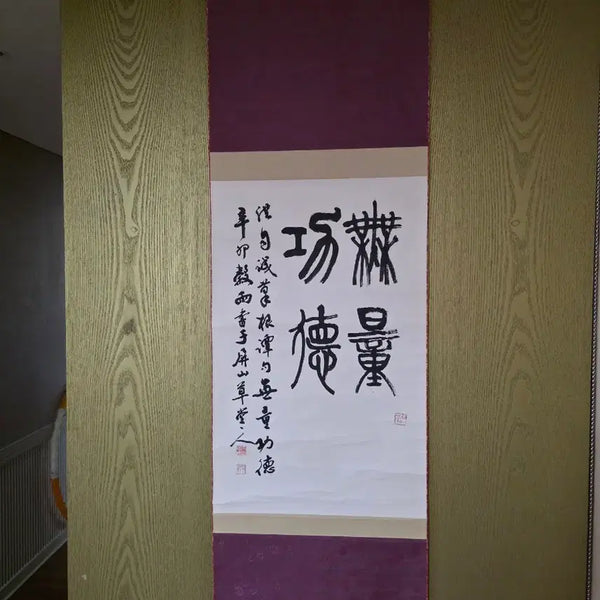 無量
功德
洪自誠菜根譚句無量功德
辛卯穀雨書于屏山草堂人